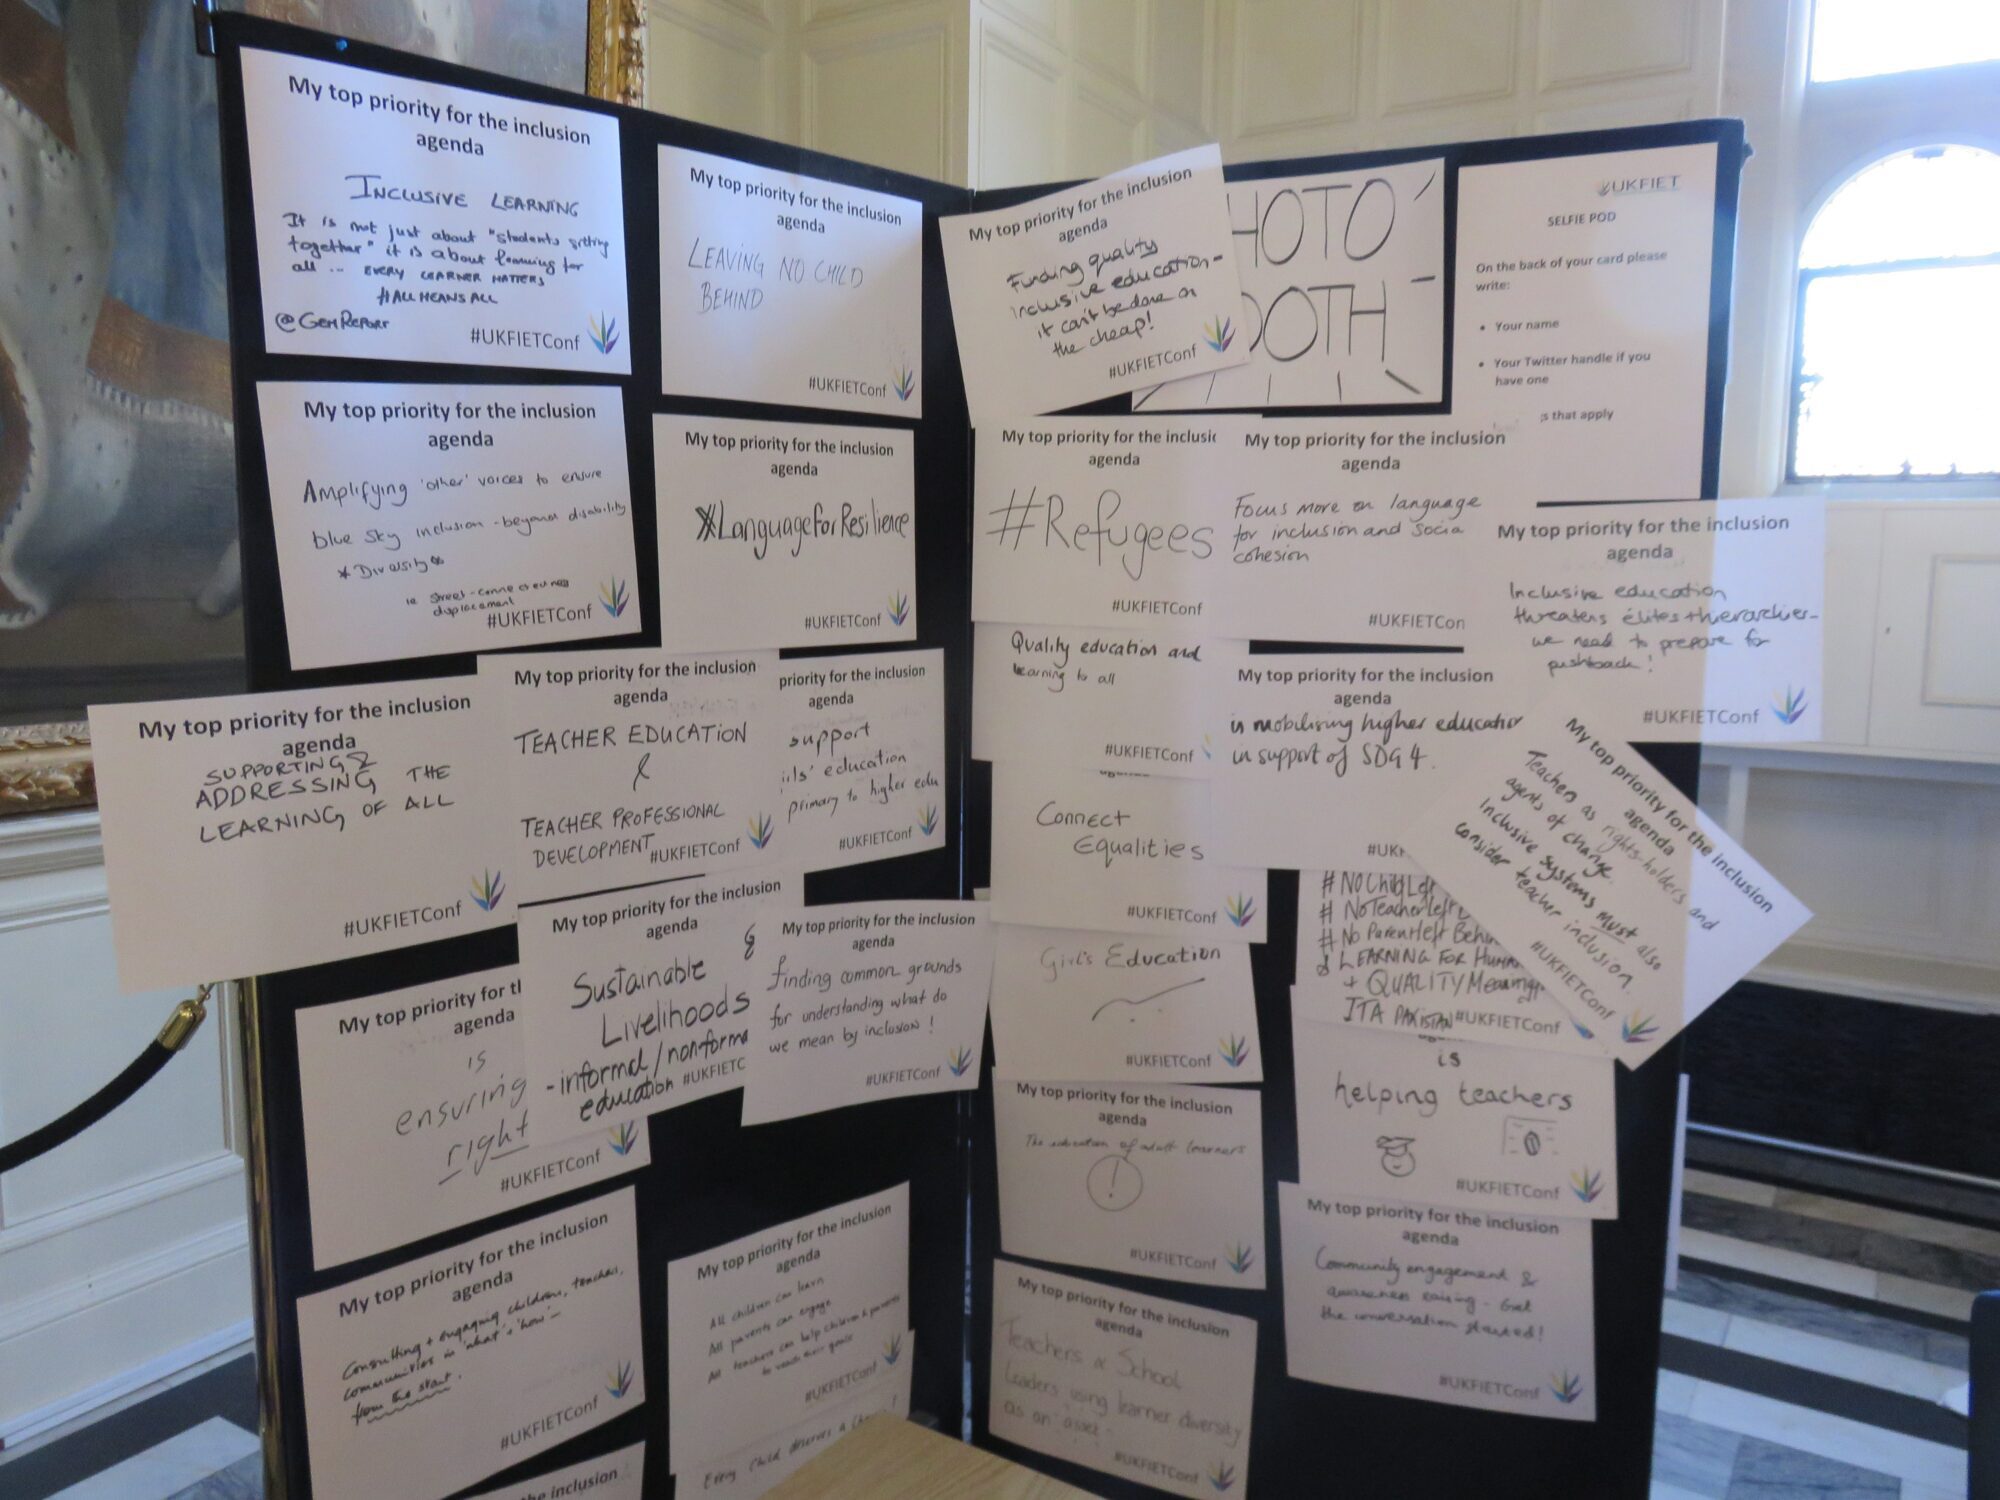 My top priority for the inclusion
agenda
INCLUSIVE LEARNING
It is not just about "students sitting
together" it is about learning for
all ... EVERY LEARNER MATTERS
#ALLMEANSALL
@GEMREPORT
#UKFIETConf
My top priority for the inclusion
agenda
LEAVING NO CHILD
BEHIND
#UKFIETConf
My top priority for the inclusion
agenda
Amplifying 'other' voices to ensure
blue sky inclusion - beyond disability
* Diversity
ie street-connectedness
displacement
#UKFIETConf
My top priority for the inclusion
agenda
#LanguageforResilience
#UKFIETConf
My top priority for the inclusion
agenda
SUPPORTING &
ADDRESSING THE
LEARNING OF ALL
#UKFIETConf
My top priority for the inclusion
agenda
TEACHER EDUCATION
&
TEACHER PROFESSIONAL
DEVELOPMENT
#UKFIETConf
priority for the inclusion
agenda
support
irls' education
primary to higher edu
#UKFIETConf
My top priority for tl
agenda
is
ensuring
right
#UKFIETConf
My top priority for the inclusion
agenda
&
Sustainable
Livelihoods
- informal/nonforma
education
#UKFIETC
My top priority for the inclusion
agenda
finding common grounds
for understanding what do
we mean by inclusion!
#UKFIETConf
My top priority for the inclusion
agenda
Consulting + engaging children, teachers,
communities in 'what' & 'how' -
from the start.
#UKFIETConf
My top priority for the inclusion
agenda
All children can learn
All parents can engage
All teachers can help children & parents
to reach their goals
#UKFIETConf
Every child deserves a chance!
for the inclusion
My top priority for the inclusion
agenda
Funding quality
inclusive education -
it can't be done on
the cheap!
#UKFIETConf
HOTO
OOTH
UKFIET
SELFIE POD
On the back of your card please
write:
• Your name
• Your Twitter handle if you
have one
s that apply
My top priority for the inclusic
agenda
#Refugees
#UKFIETConf
My top priority for the inclusion
agenda
Focus more on language
for inclusion and socia
cohesion
#UKFIETCon
My top priority for the inclusion
agenda
Inclusive education
threatens élites + hierarchies -
we need to prepare for
pushback!
#UKFIETConf
Quality education and
learning to all
#UKFIETConf
My top priority for the inclusion
agenda
is mobilising higher education
in support of SDG 4.
#UKF
My top priority for the inclusion
agenda
Teachers as rights-holders and
agents of change.
Inclusive systems must also
consider teacher inclusion
#UKFIETConf
Connect
Equalities
#UKFIETConf
# NoChildLef
# NoTeacherLeft
# No Parentleft Behin
& LEARNING FOR HUMAN
+ QUALITY Meaningf
ITA PAKISTAN
#UKFIETConf
Girl's Education
#UKFIETConf
is
helping teachers
#UKFIETConf
My top priority for the inclusion
agenda
The education of adult learners
!
#UKFIETConf
My top priority for the inclusion
agenda
Community engagement &
awareness raising - Get
the conversation started!
#UKFIETConf
My top priority for the inclusion
agenda
Teachers & School
Leaders using learner diversity
as an asset
#UKFIETConf